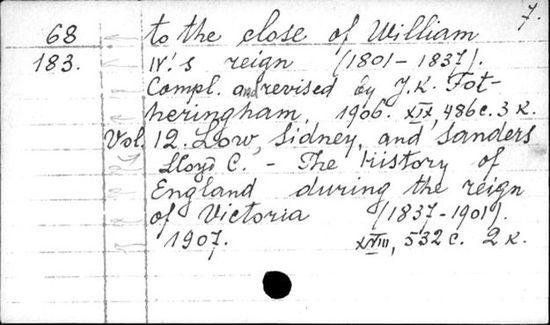 7.
68 to the close of William
183. IV.'s reign (1801-1837).
Compl. and revised by J.K. Fot-
heringham, 1906. XIX, 486 c. 3 к.
Vol. 12. Low, Sidney, and Sanders
Lloyd C. - The history of
England during the reign
of Victoria (1837-1901).
1907. XVIII, 532 c. 2 к.